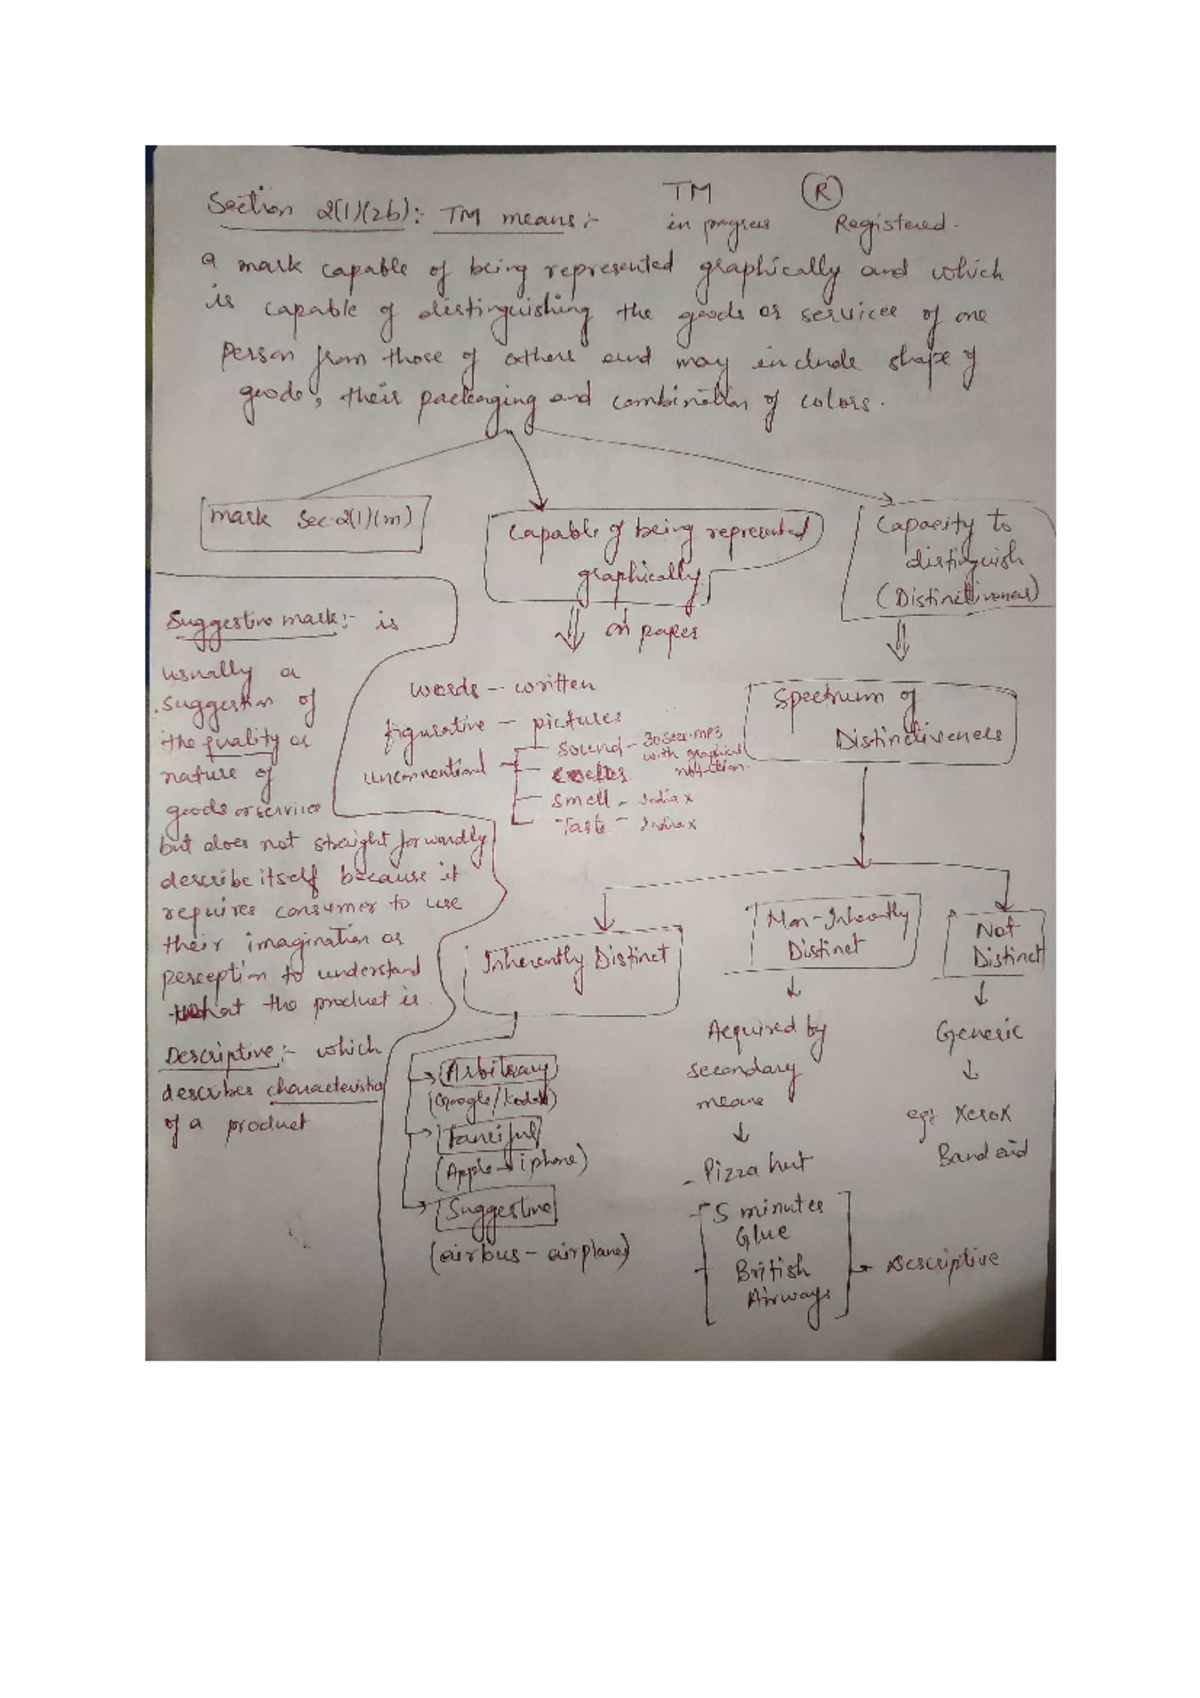 TM ®
Section 2(1)(zb):- TM means:- in progress Registered.
a mark capable of being represented graphically and which
is capable of distinguishing the goods or services of one
person from those of others and may include shape of
goods, their packaging and combination of colors.
mark Sec. 2(1)(m)
Capable of being represented
graphically
on paper
Capacity to
distinguish
(Distinctiveness)
Suggestive mark:- is
usually a
suggestion of
the quality or
nature of
goods or service
but does not straight forwardly
describe itself because it
requires consumer to use
their imagination or
perception to understand
what the product is.
Descriptive:- which
describes characteristics
of a product
words - written
figurative - pictures
unconventional
sound - 30 sec. mp3
with graphical
notation
smell - India x
Taste - India x
Spectrum of
Distinctiveness
Inherently Distinct
Arbitrary
(Google/Kodak)
Fanciful
(Apple → iphone)
Suggestive
(airbus - airplanes)
Non-Inherently
Distinct
Acquired by
secondary
means
- Pizza hut
5 minutes
Glue
British
Airways
Descriptive
Not
Distinct
Generic
eg: Xerox
Band aid